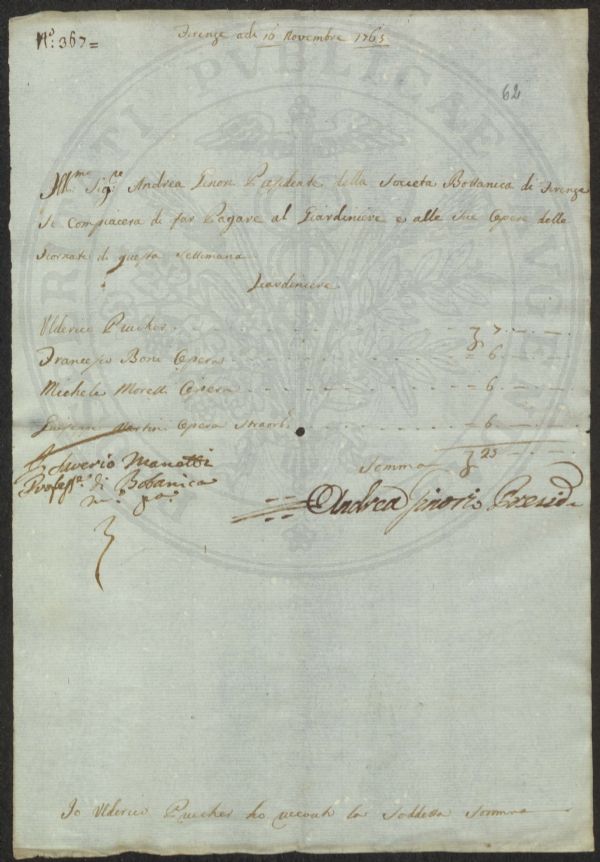 N.º 367=
Firenze adi 16 Novembre 1765
62
Ill.mo Sig.re Andrea Ginori Presidente della Società Bottanica di Firenze
Si Compiacera di far Pagare al Giardiniere e alle Sue Opere delle
Giornate di questa Settimana
Giardiniere
Ulderico Prucher 7
Francesco Boni Opera = 6
Michele Moretti Opera = 6
Martini Opera Straord. = 6
Somma 25
Saverio Manetti
Profess.e di Botanica
m.o p.a
Andrea Ginori Presid.e
Io Ulderico Prucher ho ricevuto la Soddetta Somma